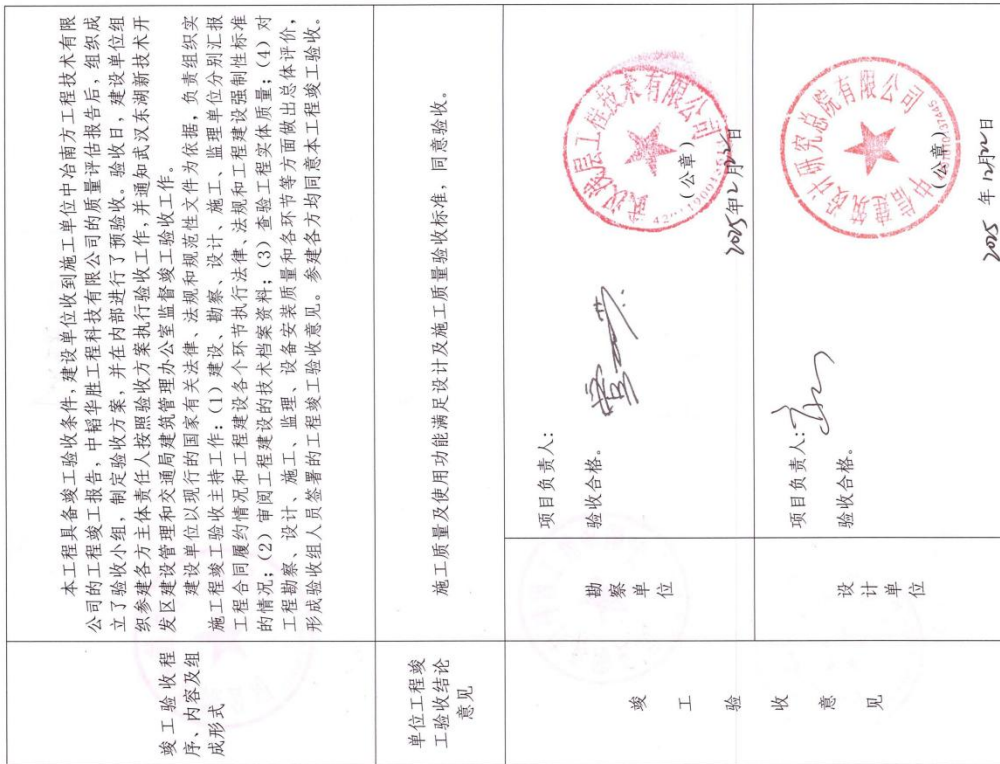 竣工验收程
序、内容及组
成形式
本工程具备竣工验收条件，建设单位收到施工单位中冶南方工程技术有限
公司的工程竣工报告，中韬华胜工程科技有限公司的质量评估报告后，组织成
立了验收小组，制定验收方案，并在内部进行了预验收。验收日，建设单位组
织参建各方主体责任人按照验收方案执行验收工作，并通知武汉东湖新技术开
发区建设管理和交通局建筑管理办公室监督竣工验收工作。
建设单位以现行的国家有关法律、法规和规范性文件为依据，负责组织实
施工程竣工验收主持工作：（1）建设、勘察、设计、施工、监理单位分别汇报
工程合同履约情况和工程建设各个环节执行法律、法规和工程建设强制性标准
的情况；（2）审阅工程建设的技术档案资料；（3）查验工程实体质量；（4）对
工程勘察、设计、施工、监理、设备安装质量和各环节等方面做出总体评价，
形成验收组人员签署的工程竣工验收意见。参建各方均同意本工程竣工验收。
单位工程竣
工验收结论
意见
施工质量及使用功能满足设计及施工质量验收标准，同意验收。
竣工验收意见
勘察单位
项目负责人：
验收合格。
武汉浅层工程技术有限公司
（公章）
2025年12月22日
设计单位
项目负责人：
验收合格。
中冶建筑设计研究总院有限公司
（公章）
2025 年 12月22日